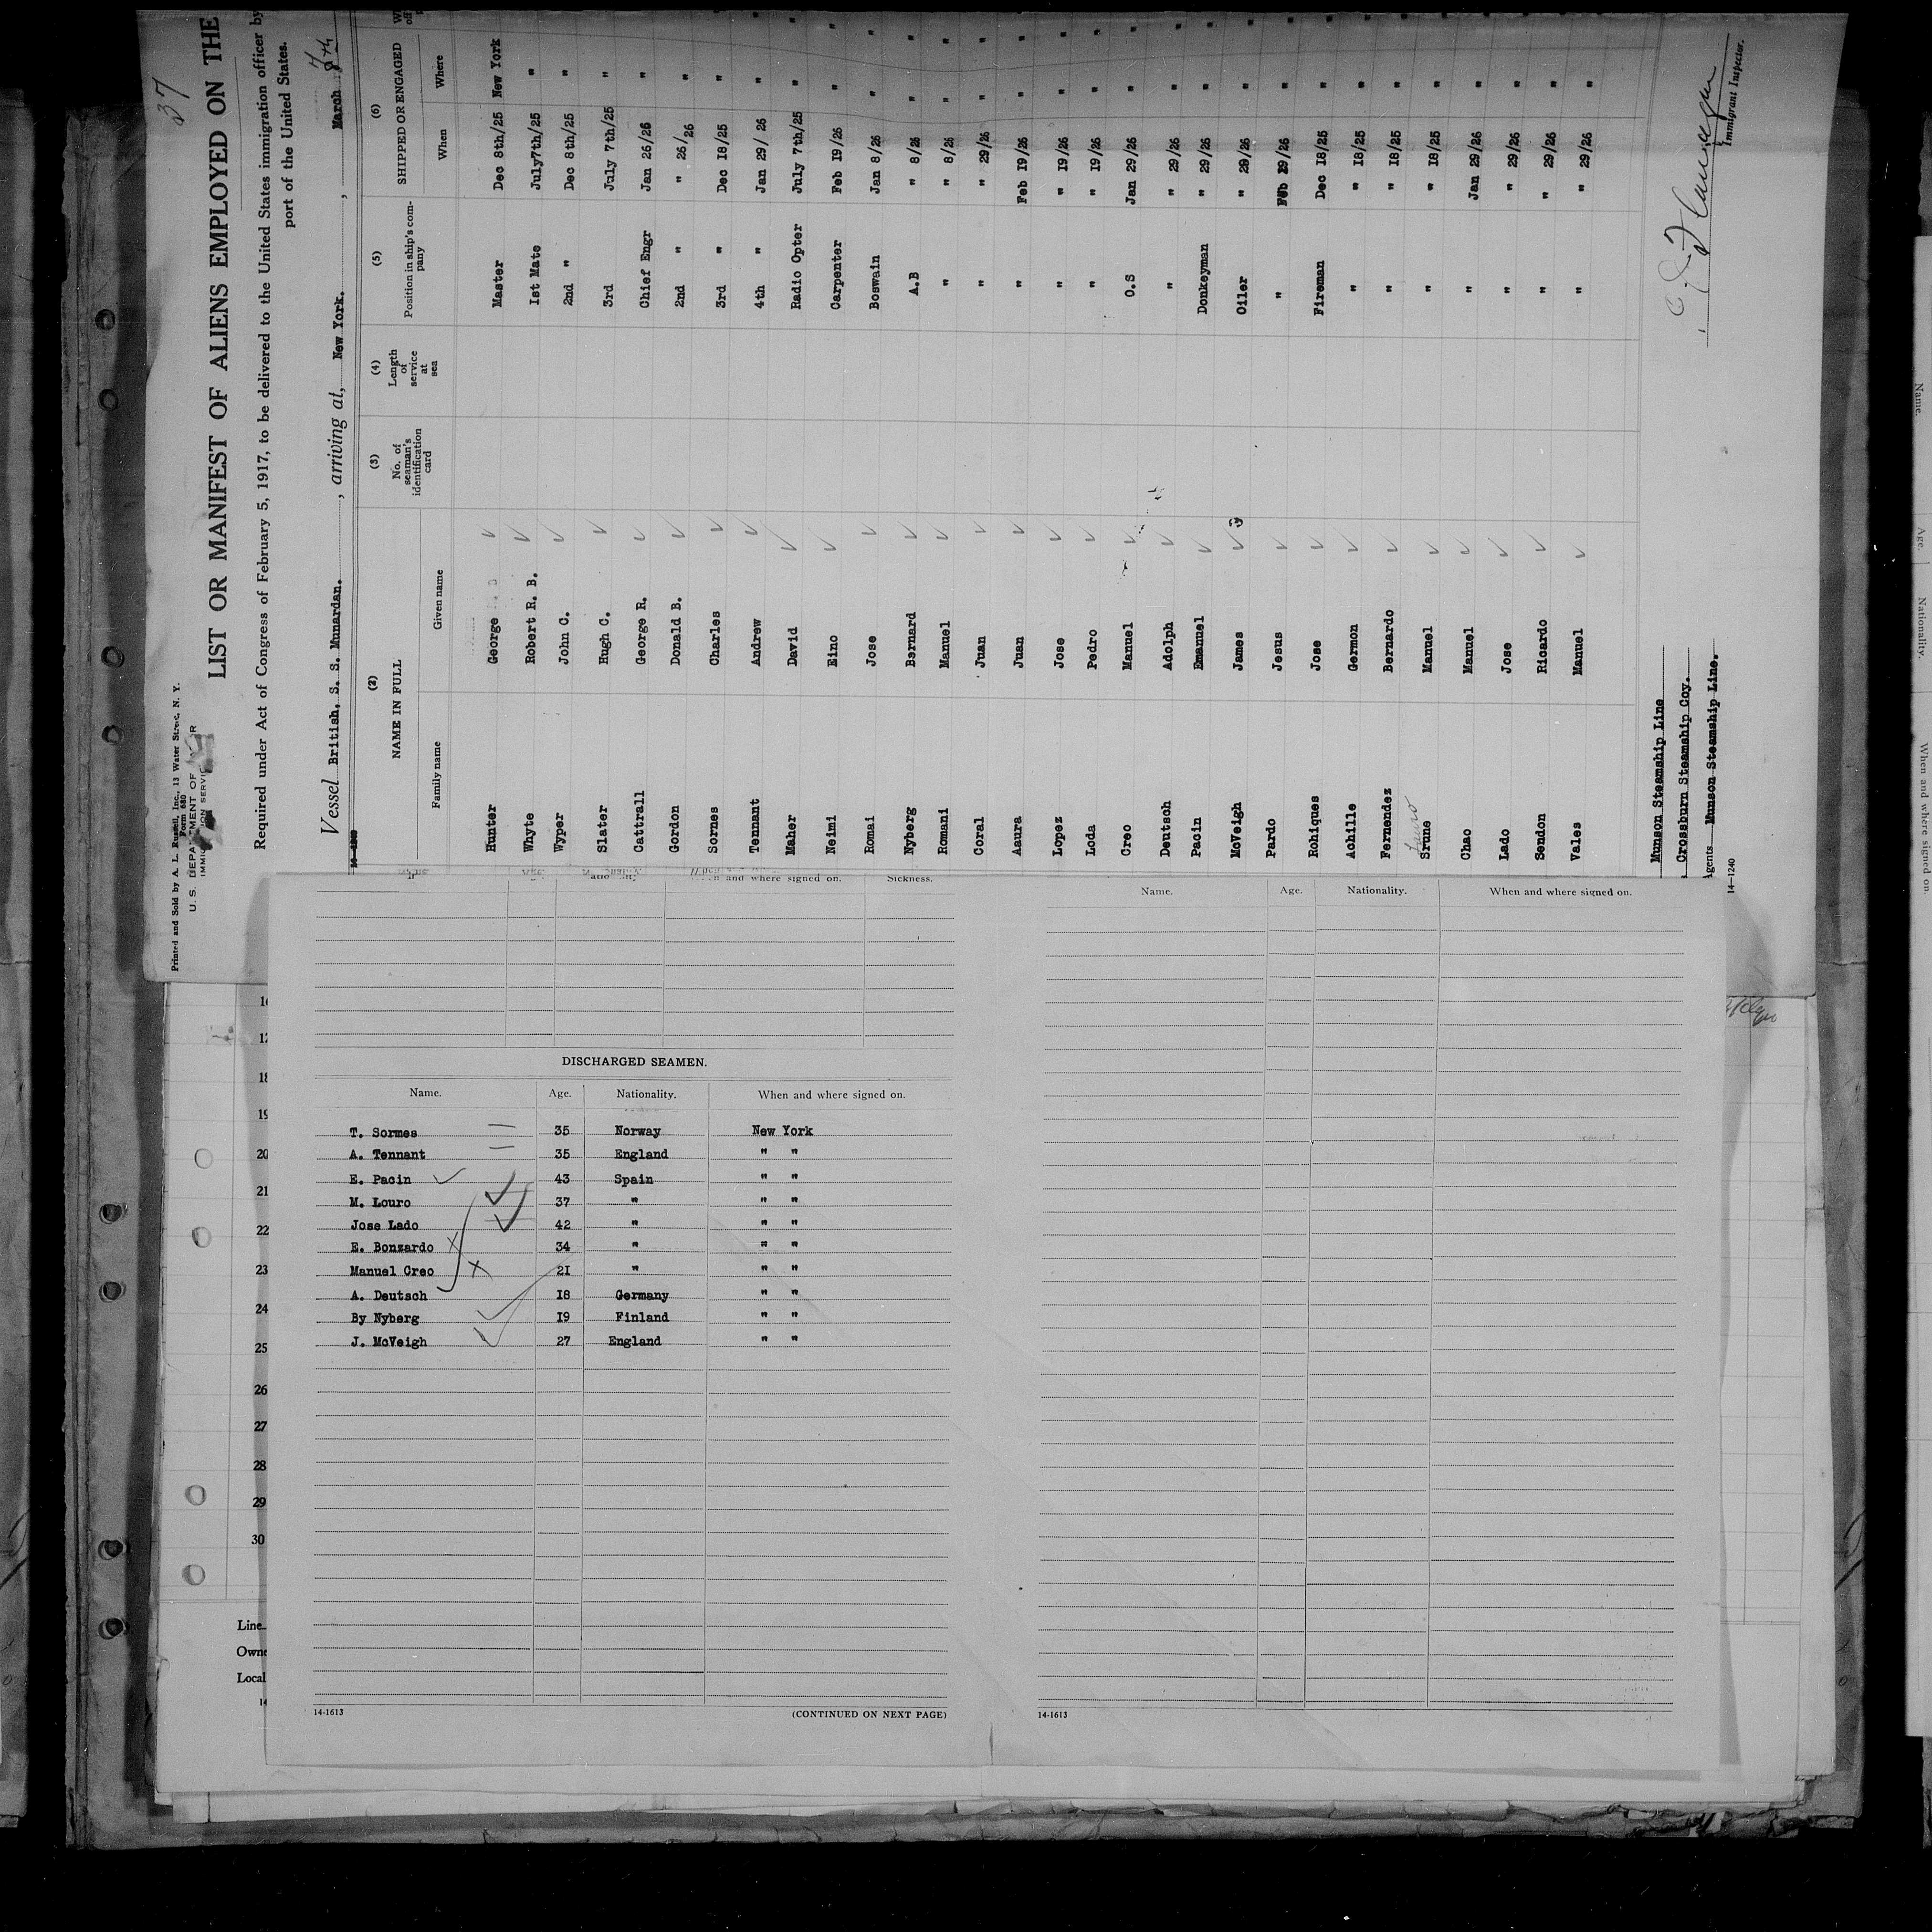 37
Printed and Sold by A. L. Russell, Inc., 13 Water Street, N. Y.
Form 680
U. S. DEPARTMENT OF LABOR
IMMIGRATION SERVICE
LIST OR MANIFEST OF ALIENS EMPLOYED ON THE
Required under Act of Congress of February 5, 1917, to be delivered to the United States immigration officer by
port of the United States.
Vessel British, S. S. Munardan. , arriving at, New York. , March 7th
(2) (3) (4) (5) (6)
NAME IN FULL No. of seaman's identification card Length of service at sea Position in ship's company SHIPPED OR ENGAGED
Family name Given name When Where
Hunter George Master Dec 8th/25 New York
Whyte Robert R. B. Ist Mate July7th/25 "
Wyper John C. 2nd " Dec 8th/25 "
Slater Hugh C. 3rd " July 7th/25 "
Cattrall George R. Chief Engr Jan 26/26 "
Gordon Donald B. 2nd " " 26/26 "
Sornes Charles 3rd " Dec 18/25 "
Tennant Andrew 4th " Jan 29/ 26 "
Maher David Radio Opter July 7th/25 "
Neimi Eino Carpenter Feb 19/26 "
Romai Jose Boswain Jan 8/26 "
Nyberg Bernard A.B " 8/26 "
Romani Manuel " " 8/26 "
Coral Juan " " 29/26 "
Aaura Juan " Feb 19/26 "
Lopez Jose " " 19/26 "
Loda Pedro " " 19/26 "
Creo Manuel O.S Jan 29/26 "
Deutsch Adolph " " 29/26 "
Pacin Emanuel Donkeyman " 29/26 "
McVeigh James Oiler " 29/26 "
Pardo Jesus " Feb 19/26 "
Rohiques Jose Fireman Dec 18/25 "
Achille Germon " " 18/25 "
Fernendez Bernardo " " 18/25 "
Srune Manuel " " 18/25 "
Chao Manuel " Jan 29/26 "
Lado Jose " " 29/26 "
Sendon Ricardo " " 29/26 "
Vales Manuel " " 29/26 "
Munson Steamship Line
Crossburn Steamship Coy.
Agents Munson Steamship Line.
14—1240
Immigrant Inspector.
and where signed on. Sickness.
Name. Age. Nationality. When and where signed on.
DISCHARGED SEAMEN.
Name. Age. Nationality. When and where signed on.
T. Sormes 35 Norway New York
A. Tennant 35 England " "
E. Pacin 43 Spain " "
M. Louro 37 " " "
Jose Lado 42 " " "
E. Bonzardo 34 " " "
Manuel Creo 21 " " "
A. Deutsch 18 Germany " "
By Nyberg 19 Finland " "
J. McVeigh 27 England " "
14-1613 (CONTINUED ON NEXT PAGE)
14-1613
18
19
20
21
22
23
24
25
26
27
28
29
30
Line
Owne
Local
Name.
Age.
Nationality.
When and where signed on.